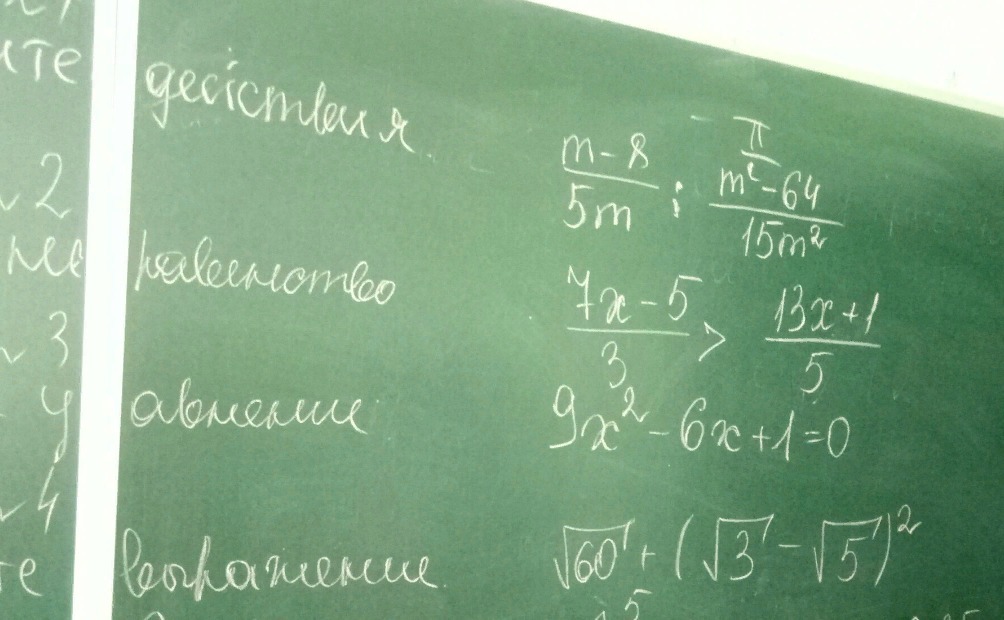 ите
действия
П
(m-8)/(5m) : (m²-64)/(15m²)
2
равенство
(7x-5)/3 > (13x+1)/5
3
у авнение
9x²-6x+1=0
4
выражение
√60 + (√3 - √5)²